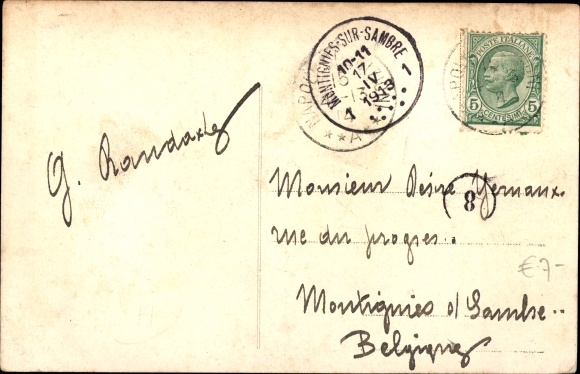 MONTIGNIES-SUR-SAMBRE
10-11
17
IV
1913
1
**A
POSTE ITALIANE
5 5
CENTESIMI
G.
Monsieur Désiré Yernaux.
8
rue du progrès..
€7-
Montignies s/ Sambre..
Belgique